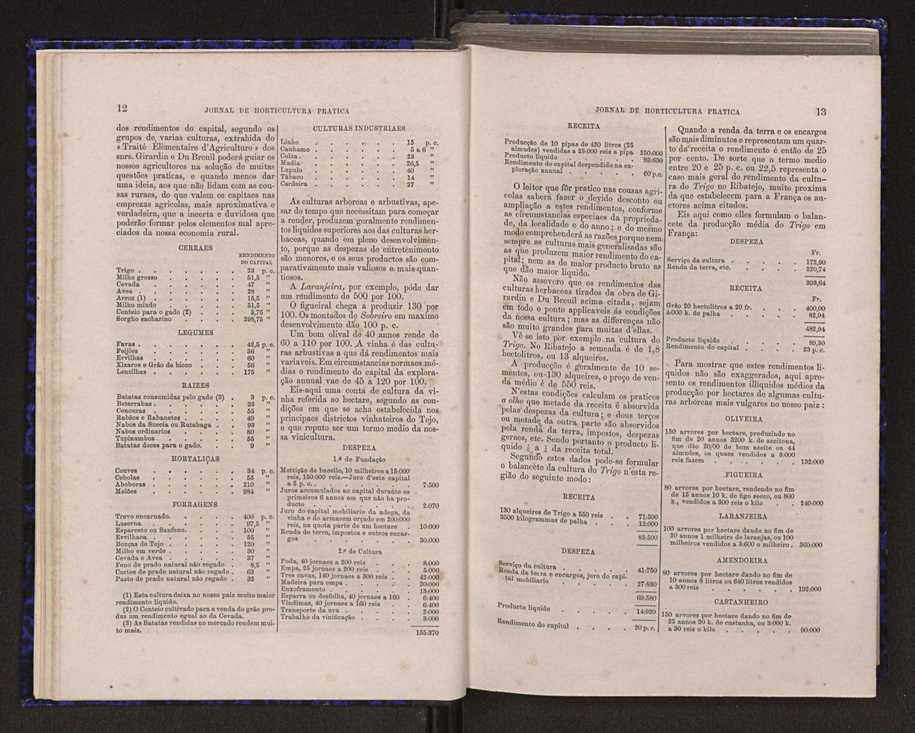 12
JORNAL DE HORTICULTURA PRATICA
dos rendimentos do capital, segundo os
grupos de varias culturas, extrahida do
«Traité Elémentaire d'Agriculture» dos
snrs. Girardin e Du Breuil poderá guiar os
nossos agricultores na solução de muitas
questões praticas, e quando menos dar
uma ideia, aos que não lidam com as cou-
sas ruraes, do que valem os capitaes nas
emprezas agricolas, mais aproximativa e
verdadeira, que a incerta e duvidosa que
poderão formar pelos elementos mal apre-
ciados da nossa economia rural.
CEREAES
RENDIMENTO
DO CAPITAL
Trigo . . . . . . 23 p. c.
Milho grosso . . . . . 51,5 »
Cevada . . . . . . 47 »
Avea . . . . . . 28 »
Arroz (1) . . . . . 15,5 »
Milho miudo . . . . . 31,5 »
Centeio para o gado (2) . . . 5,75 »
Sorgho sacharino . . . . 298,75 »
LEGUMES
Favas . . . . . . 42,5 p. c.
Feijões . . . . . . 36 »
Ervilhas . . . . . . 60 »
Xixaros e Grão de bicco . . . 56 »
Lentilhas . . . . . . 175 »
RAIZES
Batatas consumidas pelo gado (3) . 3 p. c.
Beterrabas . . . . . 33 »
Cenouras . . . . . . 55 »
Rabãos e Rabanetes . . . . 49 »
Nabos da Suecia ou Rutabaga . . 93 »
Nabos ordinarios . . . . 80 »
Tupinambos . . . . . 55 »
Batatas doces para o gado. . . 9 »
HORTALIÇAS
Couves . . . . . . 34 p. c.
Cebolas . . . . . . 55 »
Aboboras . . . . . . 210 »
Melões . . . . . . 284 »
FORRAGENS
Trevo encarnado. . . . . 400 p. c.
Luzerna . . . . . . 97,5 »
Esparceto ou Sanfeno. . . . 100 »
Ervilhaca . . . . . . 55 »
Bonças do Tojo . . . . . 120 »
Milho em verde . . . . . 30 »
Cevada e Avea . . . . . 37 »
Feno de prado natural não regado . 8,5 »
Cortes de prado natural não regado . 63 »
Pasto de prado natural não regado . 32 »
(1) Esta cultura deixa no nosso paiz muito maior
rendimento liquido.
(2) O Centeio cultivado para a venda do grão pro-
duz um rendimento egual ao da Cevada.
(3) As Batatas vendidas no mercado rendem mui-
to mais.
CULTURAS INDUSTRIAES
Linho . . . . . . 15 p. c.
Canhamo . . . . . . 5 a 6 »
Colza . . . . . . 23 »
Madia . . . . . . 26,5 »
Lupulo . . . . . . 40 »
Tabaco . . . . . . 14 »
Cardeira . . . . . . 27 »
As culturas arboreas e arbustivas, ape-
sar do tempo que necessitam para começar
a render, produzem geralmente rendimen-
tos liquidos superiores aos das culturas her-
baceas, quando em pleno desenvolvimen-
to, porque as despezas de entretenimento
são menores, e os seus productos são com-
parativamente mais valiosos e mais quan-
tiosos.
A Laranjeira, por exemplo, póde dar
um rendimento de 500 por 100.
O figueiral chega a produzir 130 por
100. Os montados de Sobreiro em maximo
desenvolvimento dão 100 p. c.
Um bom olival de 40 annos rende de
60 a 110 por 100. A vinha é das cultu-
ras arbustivas a que dá rendimentos mais
variaveis. Em circumstancias normaes mé-
dias o rendimento do capital da explora-
ção annual vac de 45 a 120 por 100.
Eis-aqui uma contá de cultura da vi-
nha referida ao hectare, segundo as con-
dições em que se acha estabelecida nos
principaes districtos vinhateiros do Tejo,
e que reputo ser um termo medio da nos-
sa vinicultura.
DESPEZA
1.º de Fundação
Mettição de bacello, 10 milheiros a 15:000
reis, 150:000 reis.—Juro d'este capital
a 5 p. c. . . . . . 7:500
Juros accumulados ao capital durante os
primeiros 6 annos em que não ha pro-
ducto . . . . . . 2:070
Juro do capital mobiliario da adega, da
vinha e do armazem orçado em 200:000
reis, na quota parte de um hectare . 10:000
Renda de terra, impostos e outros encar-
gos . . . . . . 30:000
2.º de Cultura
Poda, 40 jornaes a 200 reis . . . 8:000
Empa, 25 jornaes a 200 reis . . . 5:000
Tres cavas, 140 jornaes a 300 reis . . 42:000
Madeira para empa . . . . 20:000
Enxoframento . . . . . 13:000
Esparra ou desfolha, 40 jornaes a 160 . 6:400
Vindimas, 40 jornaes a 160 reis . . 6:400
Transporte da uva . . . . . 2:000
Trabalho da vinificação . . . . 3:000
155:370
JORNAL DE HORTICULTURA PRATICA
13
RECEITA
Producção de 10 pipas de 420 litros (25
almudes) vendidas a 25:000 reis a pipa 250:000
Producto liquido . . . . 92:630
Rendimento do capital despendido na ex-
ploração annual . . . . 60 p.c.
O leitor que fôr pratico nas cousas agri-
colas saberá fazer o devido desconto ou
ampliação a estes rendimentos, conforme
as circumstancias especiaes da proprieda-
de, da localidade e do anno; e do mesmo
modo comprehenderá as razões porque nem
sempre as culturas mais generalisadas são
as que produzem maior rendimento do ca-
pital; nem as do maior producto bruto as
que dão maior liquido.
Não assevéro que os rendimentos das
culturas herbaceas tirados da obra de Gi-
rardin e Du Breuil acima citada, sejam
em todo o ponto applicaveis ás condições
da nossa cultura; mas as differenças não
são muito grandes para muitas d'ellas.
Vê-se isto por exemplo na cultura do
Trigo. No Ribatejo a semeada é de 1,8
hectolitros, ou 13 alqueires.
A producção é geralmente de 10 se-
mentes, ou 130 alqueires, o preço de ven-
da médio é de 550 reis.
N'estas condições calculam os praticos
a olho que metade da receita é absorvida
pelas despezas da cultura; e dous terços
ou metade da outra parte são absorvidos
pela renda da terra, impostos, despezas
geraes, etc. Sendo portanto o producto li-
quido ⅙ a ¼ da receita total.
Segundo estes dados póde-se formular
o balancête da cultura do Trigo n'esta re-
gião do seguinte modo:
RECEITA
130 alqueires de Trigo a 550 reis . . 71:500
3500 kilogrammas de palha . . . 12:000
83:500
DESPEZA
Serviço da cultura . . . . . 41:750
Renda da terra e encargos, juro do capi-
tal mobiliario . . . . . 27:830
69:580
Producto liquido . . . . . 14:920
Rendimento do capital . . . . 20 p. c.
Quando a renda da terra e os encargos
são mais diminutos e representam um quar-
to da receita o rendimento é então de 25
por cento. De sorte que o termo medio
entre 20 e 25 p. c. ou 22,5 representa o
caso mais geral do rendimento da cultu-
ra do Trigo no Ribatejo, muito proxima
da que estabelecem para a França os au-
ctores acima citados.
Eis aqui como elles formulam o balan-
cete da producção média do Trigo em
França:
DESPEZA
Fr.
Serviço da cultura . . . . . 172,90
Renda da terra, etc. . . . . 220,74
393,64
RECEITA
Fr.
Grão 20 hectolitros a 20 fr. . . . 400,00
4:000 k. de palha . . . . . 82,94
482,94
Producto liquido . . . . . 89,30
Rendimento do capital . . . . 23 p. c.
Para mostrar que estes rendimentos li-
quidos não são exaggerados, aqui apre-
sento os rendimentos illiquidos médios da
producção por hectares de algumas cultu-
ras arboreas mais vulgares no nosso paiz:
OLIVEIRA
150 arvores por hectare, produzindo no
fim de 20 annos 3200 k. de azeitona,
que dão 20,00 de bom azeite ou 44
almudes, os quaes vendidos a 3:000
reis fazem . . . . . 132:000
FIGUEIRA
80 arvores por hectare, vendendo no fim
de 15 annos 10 k. de figo secco, ou 800
k., vendidos a 300 reis o kilo . . 240:000
LARANJEIRA
100 arvores por hectare dando no fim de
20 annos 1 milheiro de laranjas, ou 100
milheiros vendidos a 3:600 o milheiro. 360:000
AMENDOEIRA
80 arvores por hectare dando no fim de
10 annos 8 litros ou 640 litros vendidos
a 300 reis . . . . . 192:000
CASTANHEIRO
150 arvores por hectare dando no fim de
25 annos 20 k. de castanha, ou 3:000 k.
a 30 reis o kilo . . . . . 90:000